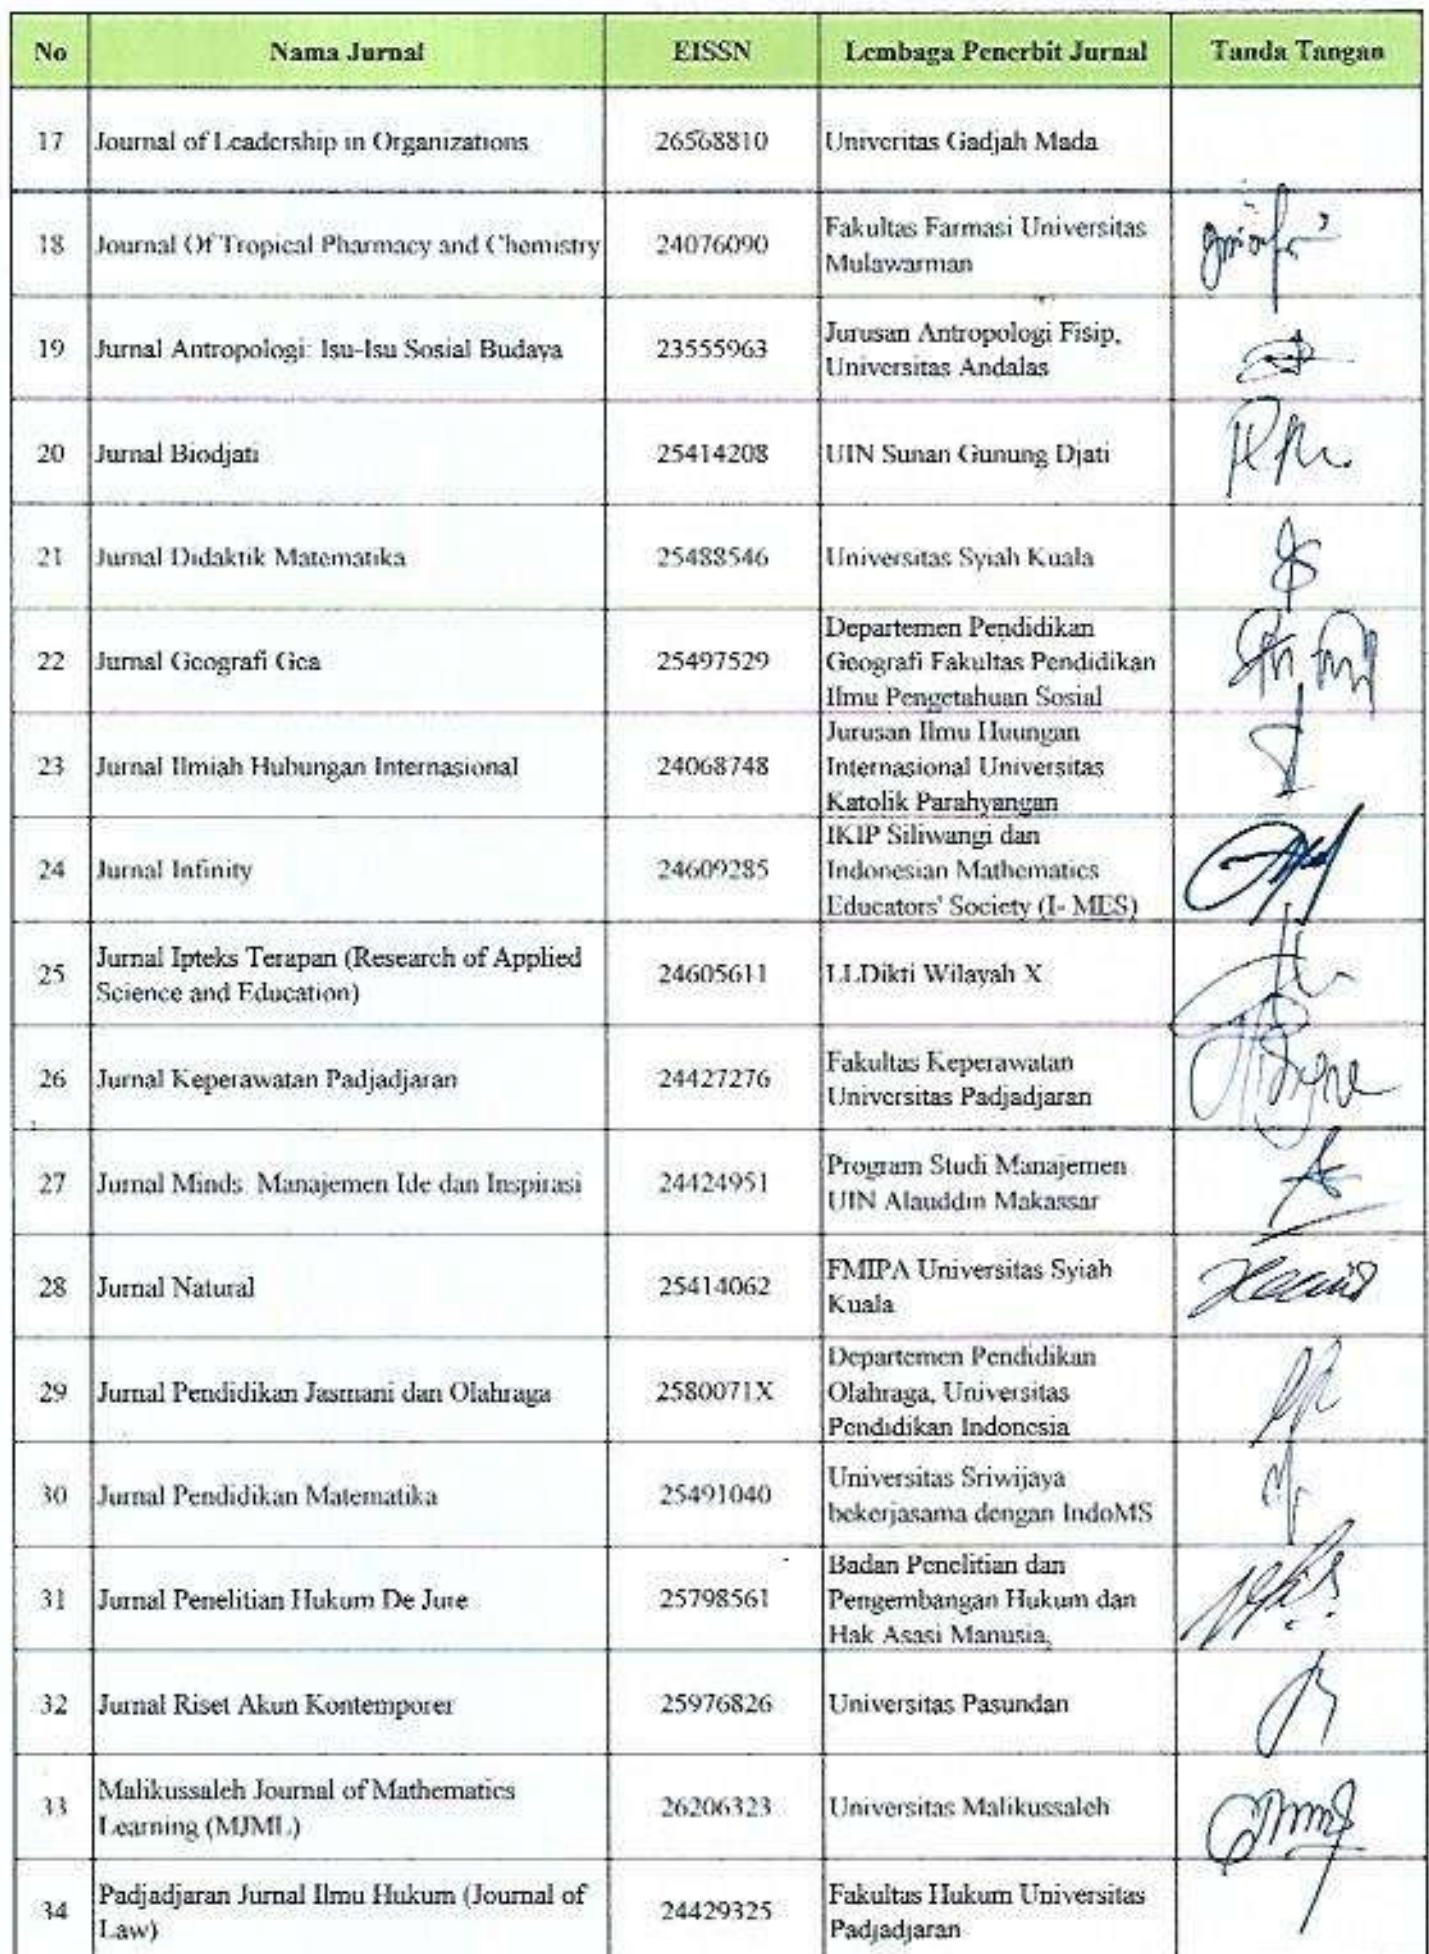 No Nama Jurnal EISSN Lembaga Penerbit Jurnal Tanda Tangan
17 Journal of Leadership in Organizations 26568810 Univeritas Gadjah Mada
18 Journal Of Tropical Pharmacy and Chemistry 24076090 Fakultas Farmasi Universitas
Mulawarman
19 Jurnal Antropologi: Isu-Isu Sosial Budaya 23555963 Jurusan Antropologi Fisip,
Universitas Andalas
20 Jurnal Biodjati 25414208 UIN Sunan Gunung Djati
21 Jurnal Didaktik Matematika 25488546 Universitas Syiah Kuala
22 Jurnal Geografi Gea 25497529 Departemen Pendidikan
Geografi Fakultas Pendidikan
Ilmu Pengetahuan Sosial
23 Jurnal Ilmiah Hubungan Internasional 24068748 Jurusan Ilmu Huungan
Internasional Universitas
Katolik Parahyangan
24 Jurnal Infinity 24609285 IKIP Siliwangi dan
Indonesian Mathematics
Educators' Society (I- MES)
25 Jurnal Ipteks Terapan (Research of Applied
Science and Education) 24605611 LLDikti Wilayah X
26 Jurnal Keperawatan Padjadjaran 24427276 Fakultas Keperawatan
Universitas Padjadjaran
27 Jurnal Minds Manajemen Ide dan Inspirasi 24424951 Program Studi Manajemen
UIN Alauddin Makassar
28 Jurnal Natural 25414062 FMIPA Universitas Syiah
Kuala
29 Jurnal Pendidikan Jasmani dan Olahraga 2580071X Departemen Pendidikan
Olahraga, Universitas
Pendidikan Indonesia
30 Jurnal Pendidikan Matematika 25491040 Universitas Sriwijaya
bekerjasama dengan IndoMS
31 Jurnal Penelitian Hukum De Jure 25798561 Badan Penelitian dan
Pengembangan Hukum dan
Hak Asasi Manusia,
32 Jurnal Riset Akun Kontemporer 25976826 Universitas Pasundan
33 Malikussaleh Journal of Mathematics
Learning (MJML) 26206323 Universitas Malikussaleh
34 Padjadjaran Jurnal Ilmu Hukum (Journal of
Law) 24429325 Fakultas Hukum Universitas
Padjadjaran